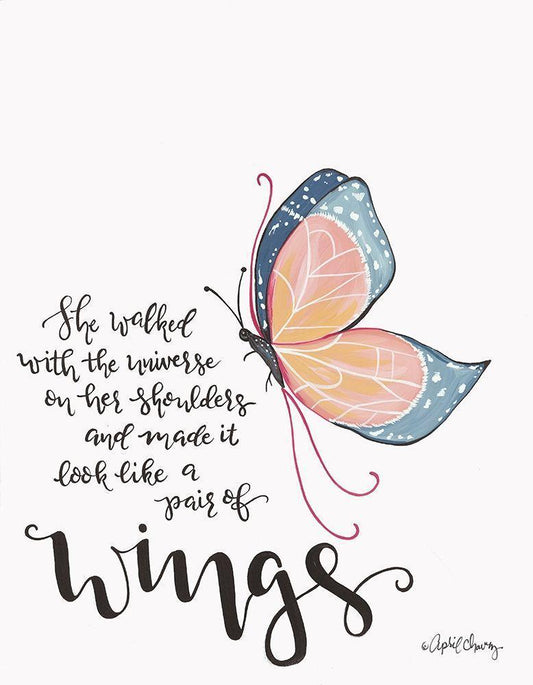 She walked
with the universe
on her shoulders
and made it
look like a
pair of
wings
© April Chavez